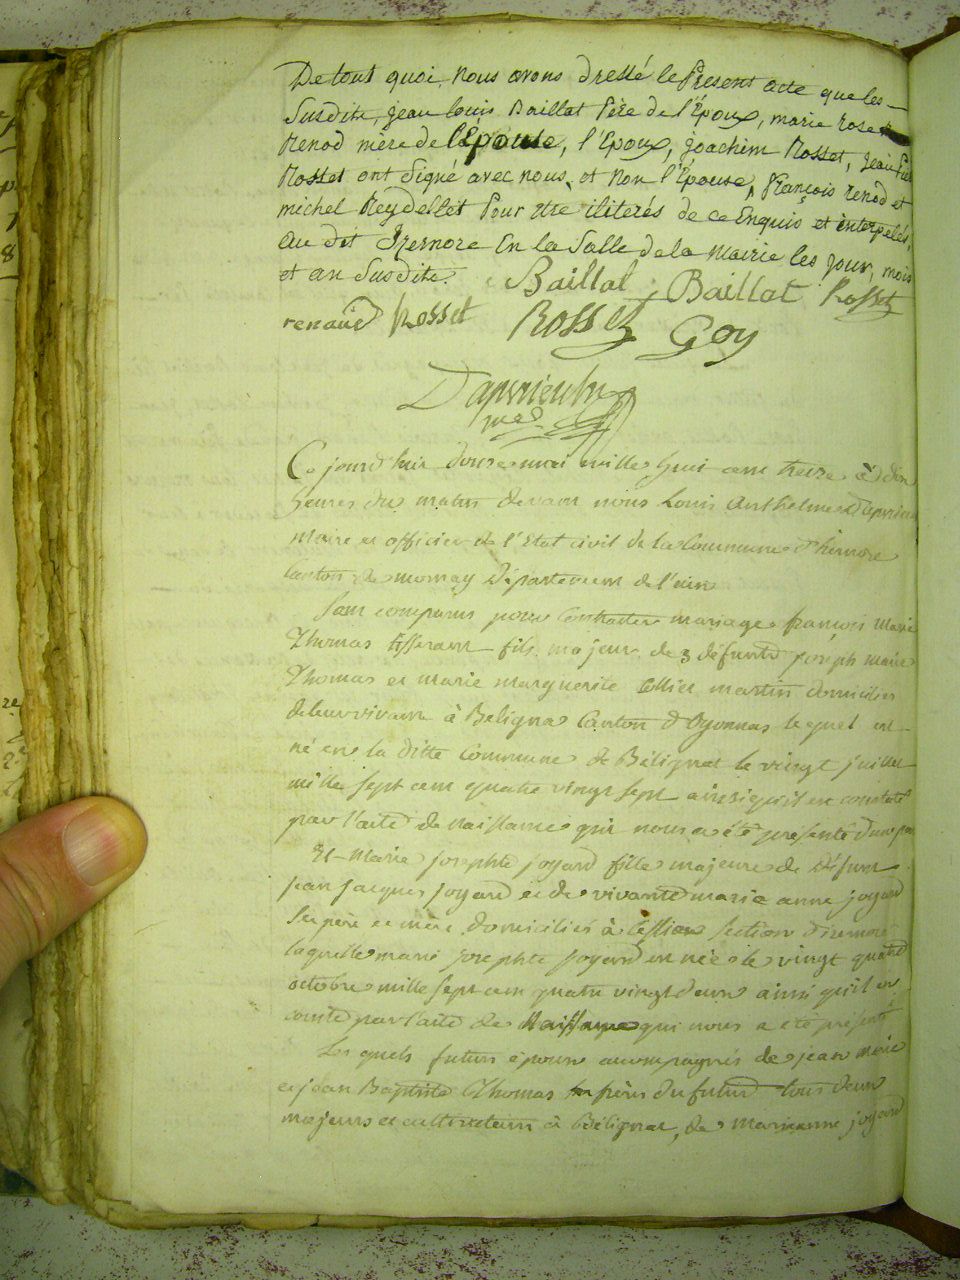 De tout quoi, nous avons dressé le Présent acte que les
Susdits, jean louis Baillat Père de l'Époux, marie rose
Renod mère de l'Épouse, l'Époux, joachim Rosset, jean
Rosset ont Signé avec nous, et non l'Épouse, François renod et
michel Reydellet Pour Etre iliterés de ce Enquis et interpelés,
Au dit Izernore En la Salle de la Mairie les jour, mois
et an Susdits. Baillat Baillat Rosset
renaud Rosset Rosset Goy
Ce jourd'huy douze mai mille huit cent treize à dix
heures du matin devant nous Louis Anthelme
maire et officier de l'Etat civil de la Commune d'
Canton de mornay Département de l'ain
Sont comparus pour Contracter mariage françois Marie
Thomas tisserant fils majeur de défunts joseph marie
Thomas et marie marguerite Collier martin domiciliés
de leur vivant à Béligna Canton d'Oyonnas lequel est
né en la ditte Commune de Bélignat le vingt juillet
mille sept cent quatre vingt sept ainsi qu'il en constate
par l'acte de Naissance qui nous a été présenté d'une part
Et Marie josephte joyard fille majeure de Défunt
jean jacques joyard et de vivante marie anne joyard
Ses père et mère domiciliés à section
laquelle marie josephte joyard est née le vingt quatre
octobre mille sept cent quatre vingt deux ainsi qu'il en
conste par l'acte de Naissance qui nous a été présenté
Les quels futurs époux accompagnés de jean marie
et jean Baptiste Thomas frères du futur tous deux
majeurs et cultivateurs à Bélignat, de Marianne joyard